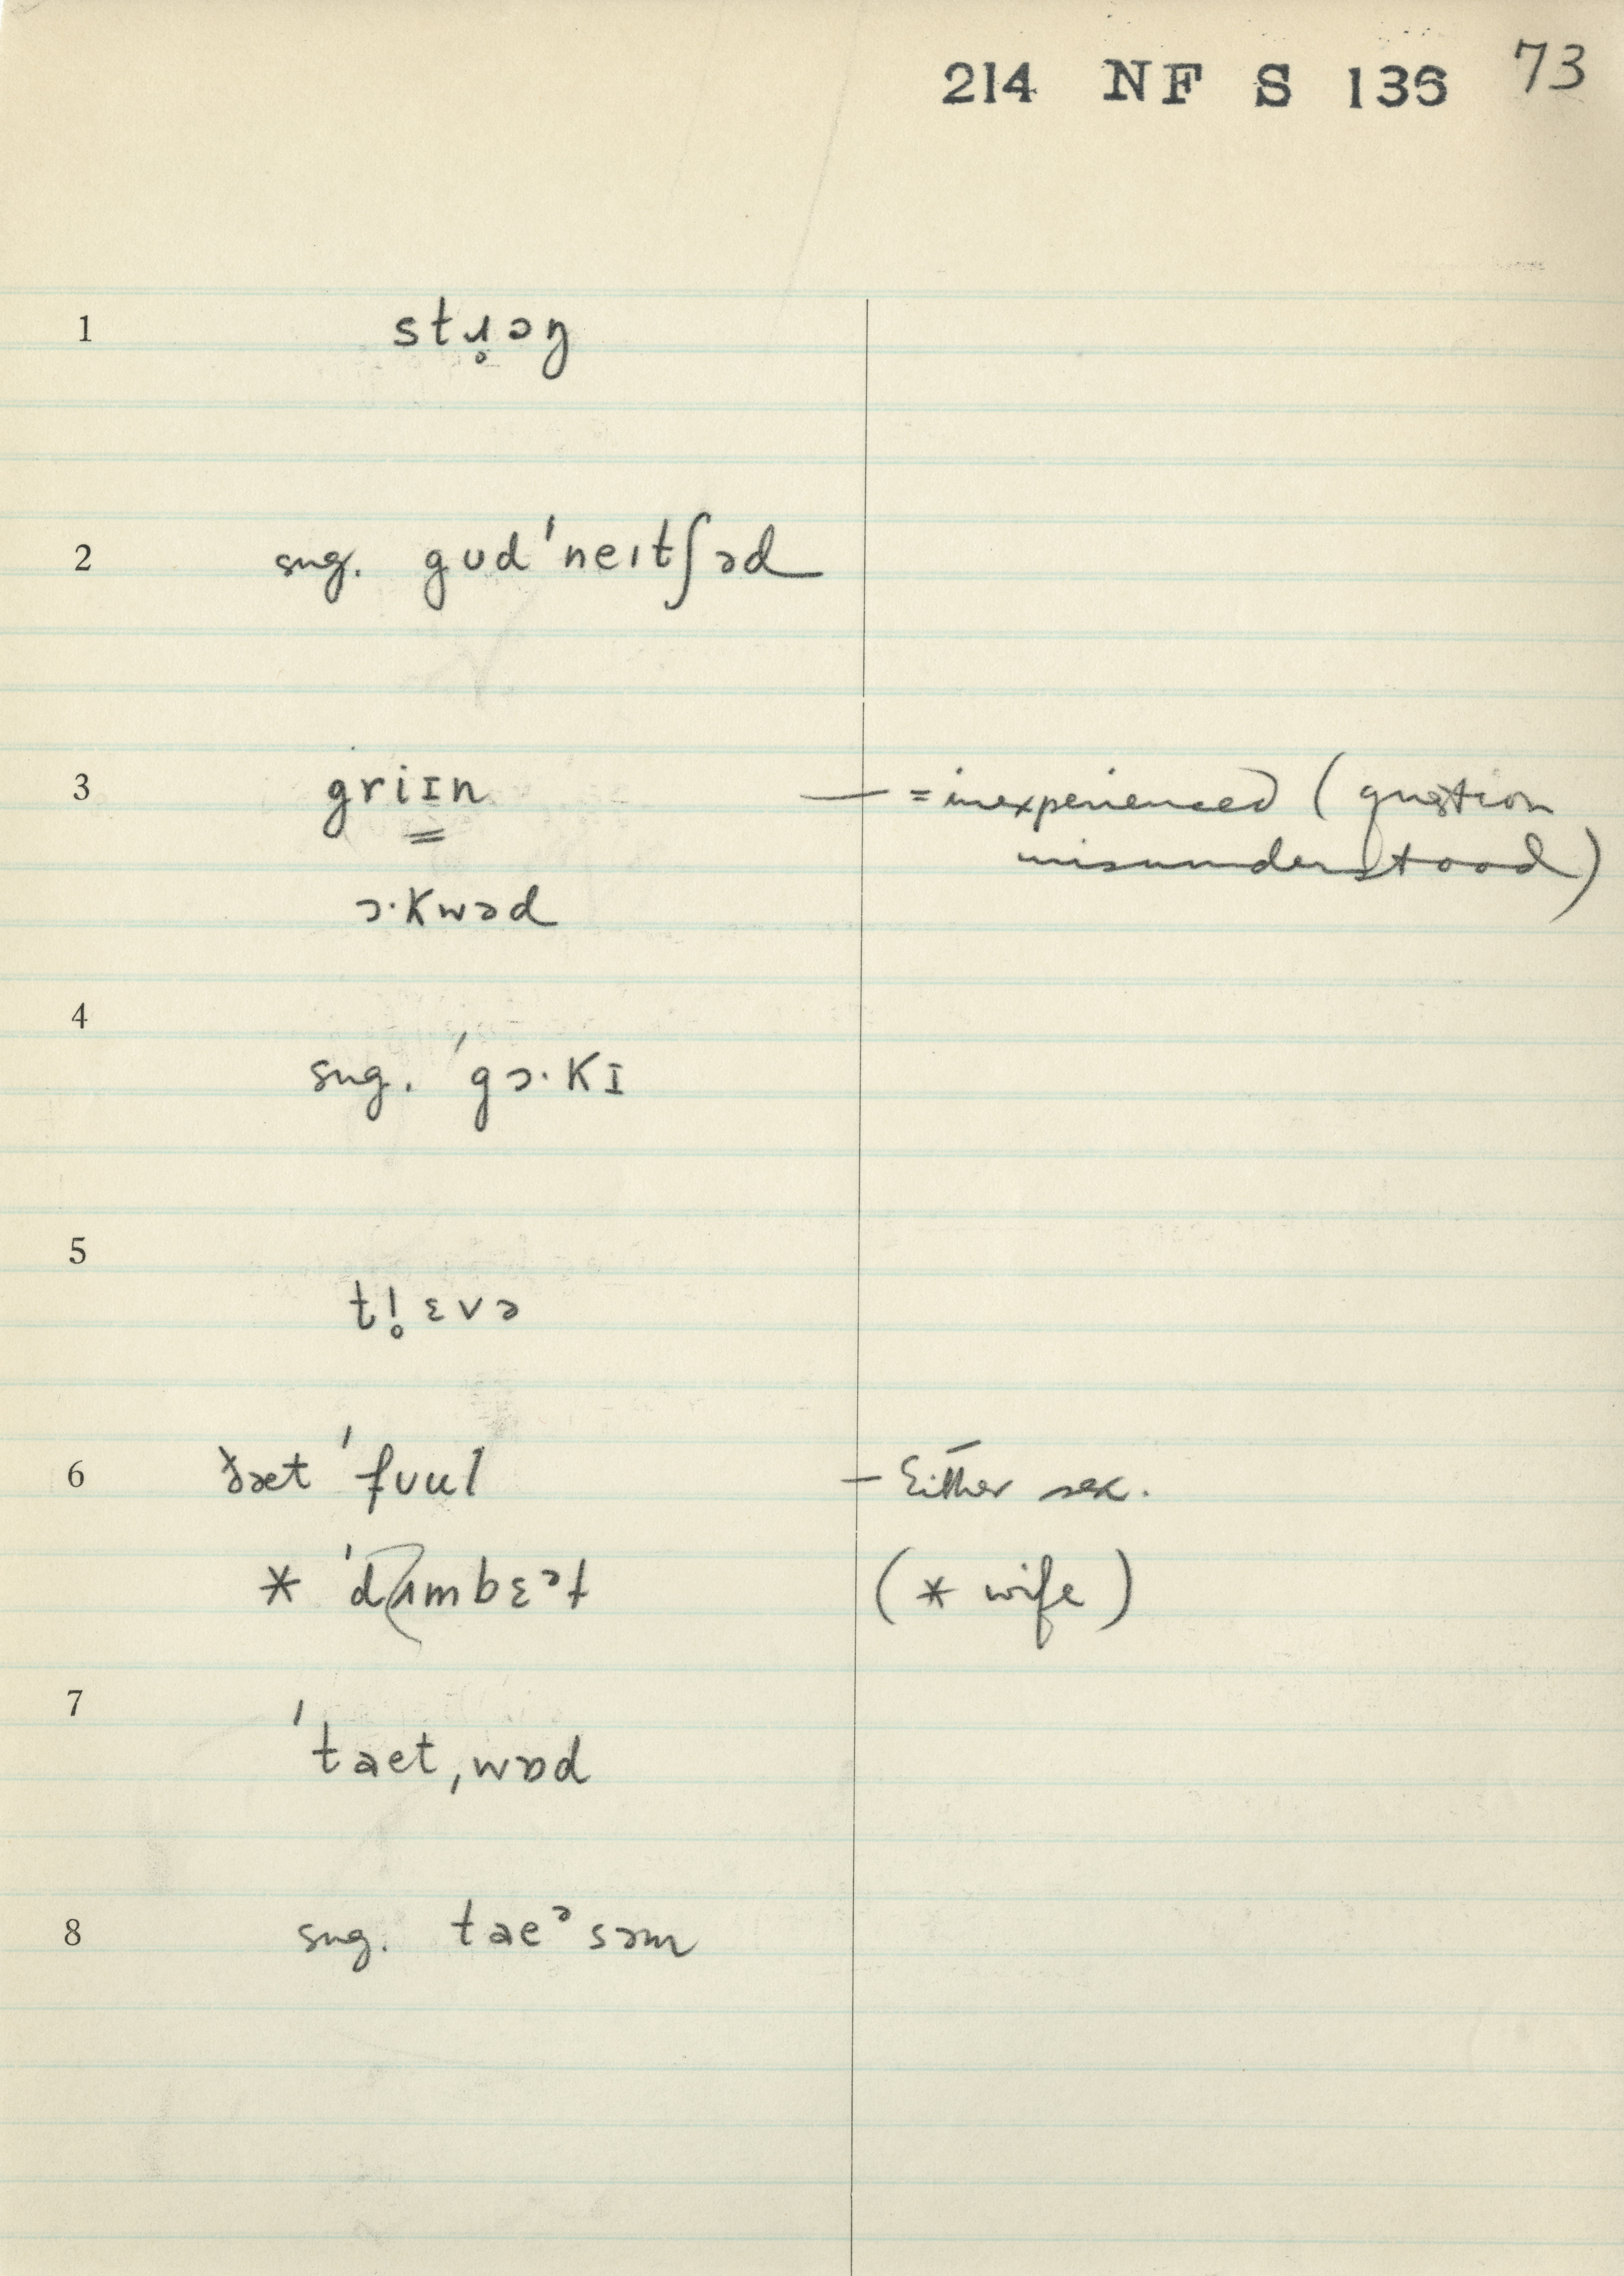 214 NF S 136 73
1 stɹ̥ɔŋ
2 sug. gʊd'neɪtʃəd
3 griɪn — = inexperienced (question
misunderstood)
ɔ·kwəd
4 sug. 'gɔ·kɪ
5 tl̥ɛvə
6 ðæt 'fʊul — Either sex.
* 'dʌmbɛᵊt (* wife)
7 'taet,wəd
8 sug. taeᵊsəm